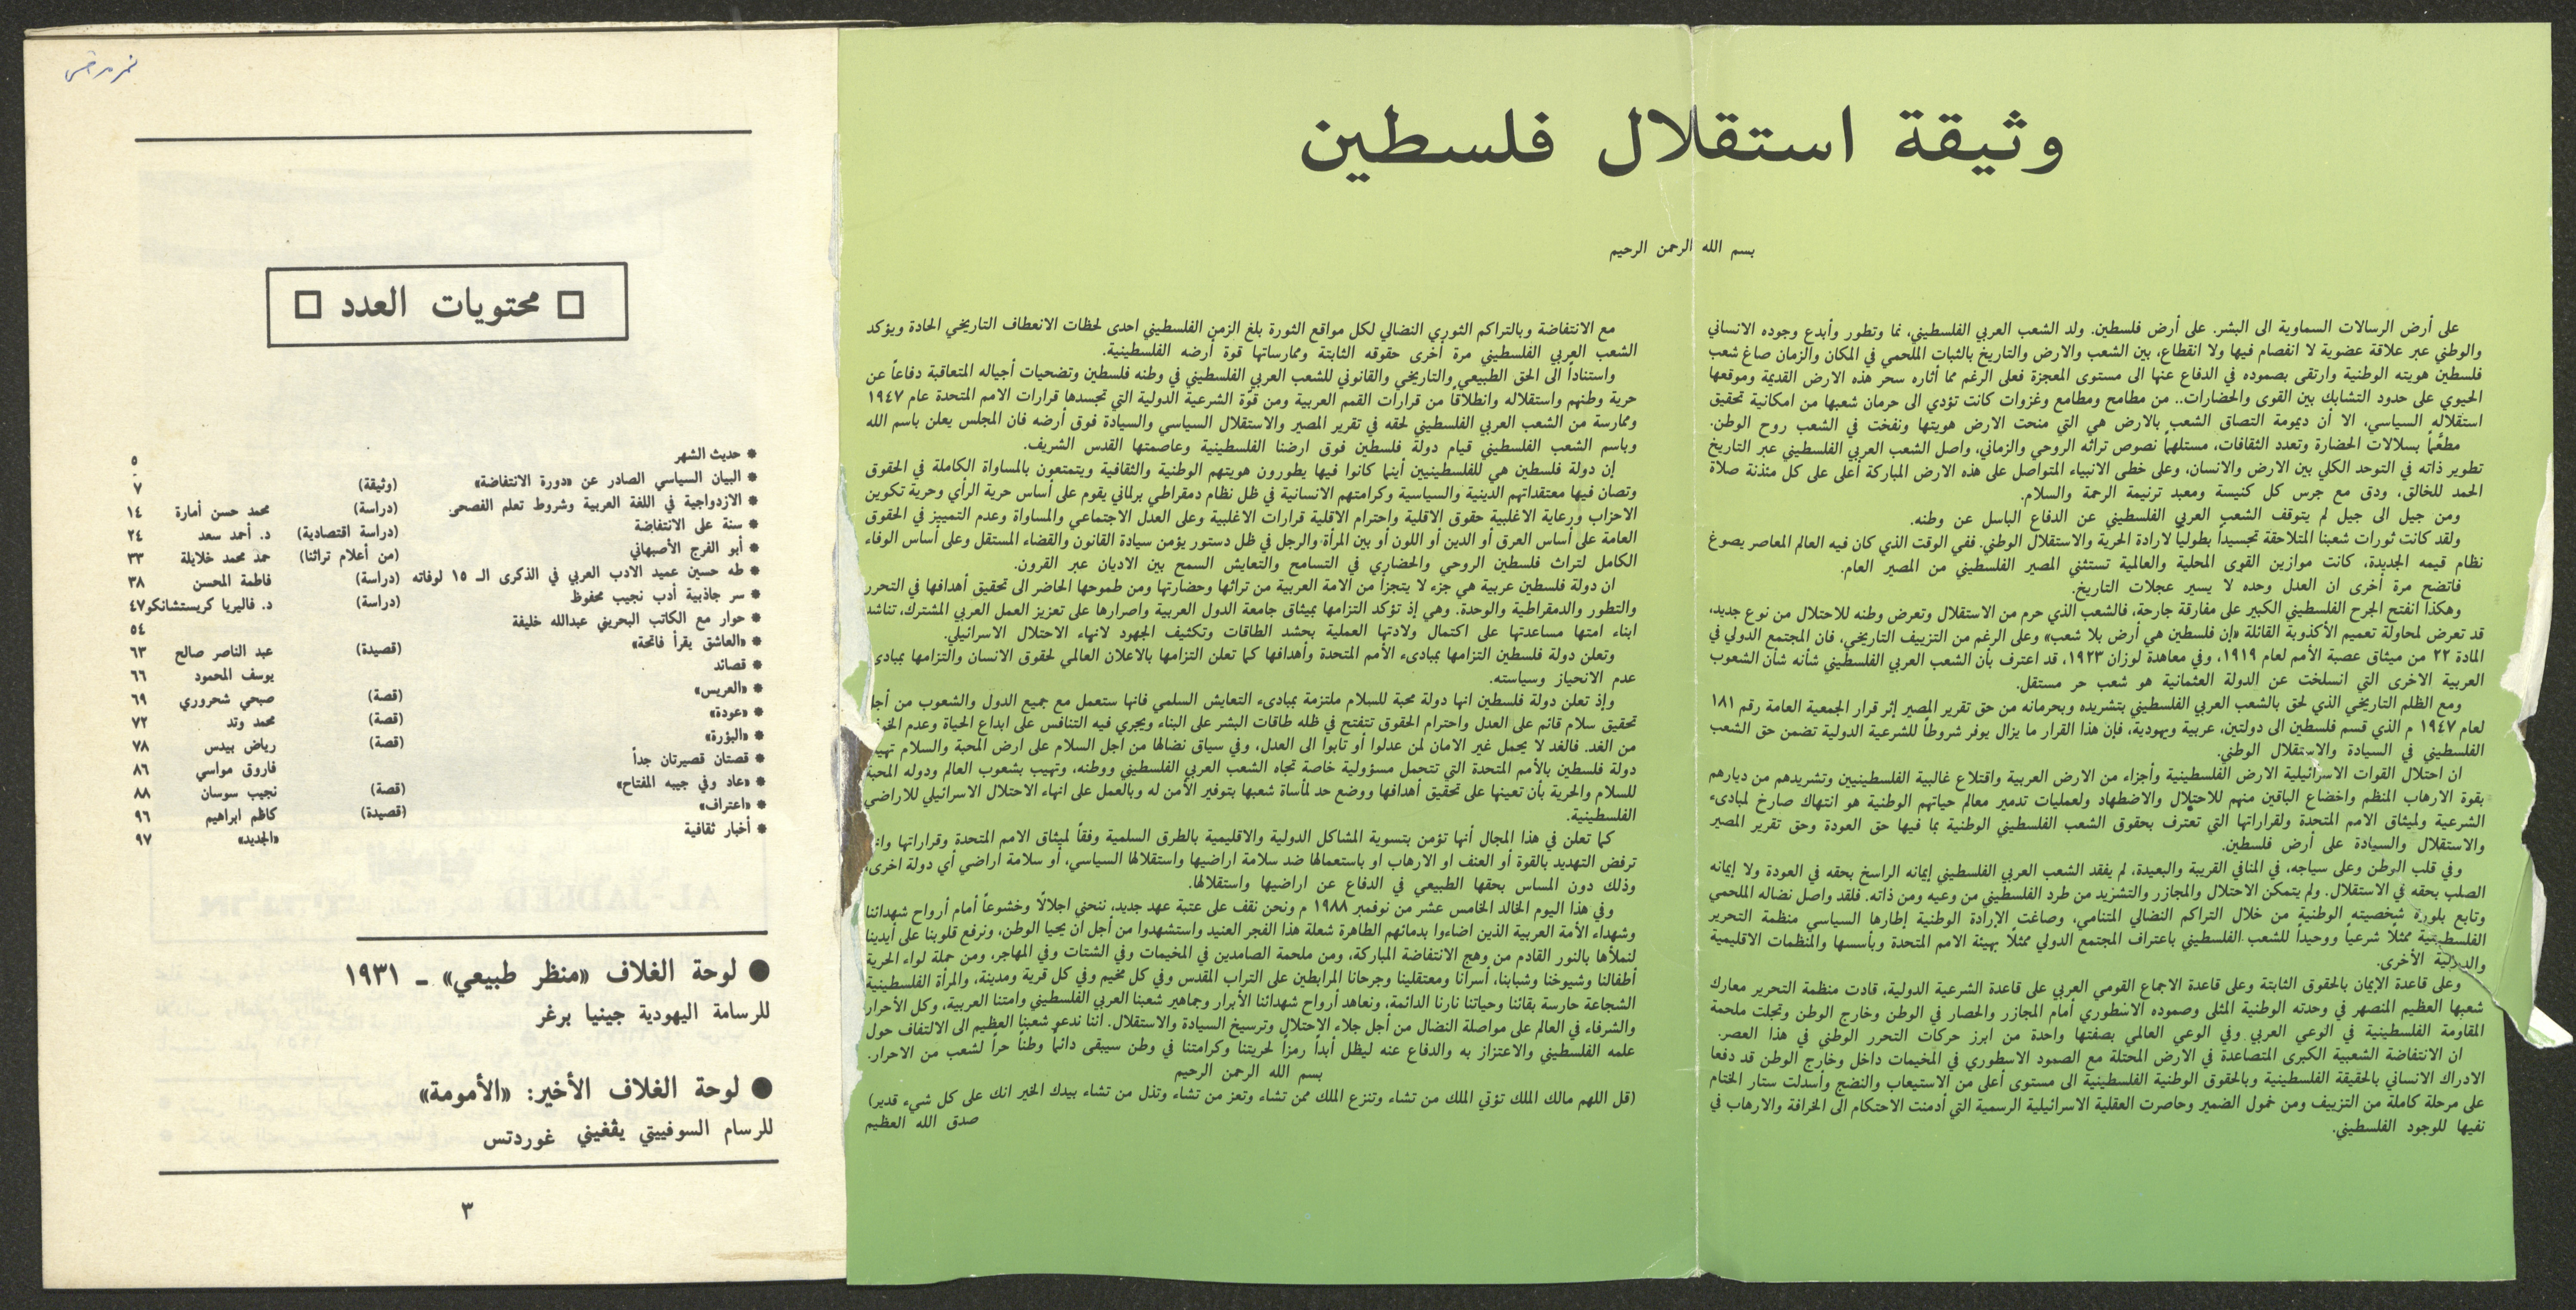 وثيقة استقلال فلسطين
بسم الله الرحمن الرحيم
على أرض الرسالات السماوية الى البشر. على أرض فلسطين. ولد الشعب العربي الفلسطيني، نما وتطور وأبدع وجوده الانساني
والوطني عبر علاقة عضوية لا انفصام فيها ولا انقطاع، بين الشعب والارض والتاريخ بالثبات الملحمي في المكان والزمان صاغ شعب
فلسطين هويته الوطنية وارتقى بصموده في الدفاع عنها الى مستوى المعجزة فعلى الرغم مما أثاره سحر هذه الارض القديمة وموقعها
الحيوي على حدود التشابك بين القوى والحضارات.. من مطامح ومطامع وغزوات كانت تؤدي الى حرمان شعبها من امكانية تحقيق
استقلاله السياسي، الا أن ديمومة التصاق الشعب بالارض هي التي منحت الارض هويتها ونفخت في الشعب روح الوطن.
مطعّماً بسلالات الحضارة وتعدد الثقافات، مستلهماً نصوص تراثه الروحي والزماني، واصل الشعب العربي الفلسطيني عبر التاريخ
تطوير ذاته في التوحد الكلي بين الارض والانسان، وعلى خطى الانبياء المتواصل على هذه الارض المباركة أعلى على كل مئذنة صلاة
الحمد للخالق، ودق مع جرس كل كنيسة ومعبد ترنيمة الرحمة والسلام.
ومن جيل الى جيل لم يتوقف الشعب العربي الفلسطيني عن الدفاع الباسل عن وطنه.
ولقد كانت ثورات شعبنا المتلاحقة تجسيداً بطولياً لارادة الحرية والاستقلال الوطني. ففي الوقت الذي كان فيه العالم المعاصر يصوغ
نظام قيمه الجديدة، كانت موازين القوى المحلية والعالمية تستثني المصير الفلسطيني من المصير العام.
فاتضح مرة أخرى ان العدل وحده لا يسير عجلات التاريخ.
وهكذا انفتح الجرح الفلسطيني الكبير على مفارقة جارحة، فالشعب الذي حرم من الاستقلال وتعرض وطنه للاحتلال من نوع جديد،
قد تعرض لمحاولة تعميم الأكذوبة القائلة «إن فلسطين هي أرض بلا شعب» وعلى الرغم من التزييف التاريخي، فان المجتمع الدولي في
المادة ٢٢ من ميثاق عصبة الأمم لعام ١٩١٩، وفي معاهدة لوزان ١٩٢٣، قد اعترف بأن الشعب العربي الفلسطيني شأنه شأن الشعوب
العربية الاخرى التي انسلخت عن الدولة العثمانية هو شعب حر مستقل.
ومع الظلم التاريخي الذي لحق بالشعب العربي الفلسطيني بتشريده وبحرمانه من حق تقرير المصير إثر قرار الجمعية العامة رقم ١٨١
لعام ١٩٤٧ م الذي قسم فلسطين الى دولتين، عربية ويهودية، فإن هذا القرار ما يزال يوفر شروطاً للشرعية الدولية تضمن حق الشعب
الفلسطيني في السيادة والاستقلال الوطني.
ان احتلال القوات الاسرائيلية الارض الفلسطينية وأجزاء من الارض العربية واقتلاع غالبية الفلسطينيين وتشريدهم من ديارهم
بقوة الارهاب المنظم واخضاع الباقين منهم للاحتلال والاضطهاد ولعمليات تدمير معالم حياتهم الوطنية هو انتهاك صارخ لمبادىء
الشرعية ولميثاق الامم المتحدة ولقراراتها التي تعترف بحقوق الشعب الفلسطيني الوطنية بما فيها حق العودة وحق تقرير المصير
والاستقلال والسيادة على أرض فلسطين.
وفي قلب الوطن وعلى سياجه، في المنافي القريبة والبعيدة، لم يفقد الشعب العربي الفلسطيني إيمانه الراسخ بحقه في العودة ولا إيمانه
الصلب بحقه في الاستقلال. ولم يتمكن الاحتلال والمجازر والتشريد من طرد الفلسطيني من وعيه ومن ذاته. فلقد واصل نضاله الملحمي
وتابع بلورة شخصيته الوطنية من خلال التراكم النضالي المتنامي، وصاغت الإرادة الوطنية إطارها السياسي منظمة التحرير
الفلسطينية ممثلاً شرعياً ووحيداً للشعب الفلسطيني باعتراف المجتمع الدولي ممثلاً بهيئة الامم المتحدة وبأسسها والمنظمات الاقليمية
والدولية الأخرى.
وعلى قاعدة الإيمان بالحقوق الثابتة وعلى قاعدة الاجماع القومي العربي على قاعدة الشرعية الدولية، قادت منظمة التحرير معارك
شعبها العظيم المنصهر في وحدته الوطنية المثلى وصموده الاسطوري أمام المجازر والحصار في الوطن وخارج الوطن وتجلت ملحمة
المقاومة الفلسطينية في الوعي العربي وفي الوعي العالمي بصفتها واحدة من ابرز حركات التحرر الوطني في هذا العصر.
ان الانتفاضة الشعبية الكبرى المتصاعدة في الارض المحتلة مع الصمود الاسطوري في المخيمات داخل وخارج الوطن قد دفعا
الادراك الانساني بالحقيقة الفلسطينية وبالحقوق الوطنية الفلسطينية الى مستوى أعلى من الاستيعاب والنضج وأسدلت ستار الختام
على مرحلة كاملة من التزييف ومن خمول الضمير وحاصرت العقلية الاسرائيلية الرسمية التي أدمنت الاحتكام الى الخرافة والارهاب في
نفيها للوجود الفلسطيني.
مع الانتفاضة وبالتراكم الثوري النضالي لكل مواقع الثورة بلغ الزمن الفلسطيني احدى لحظات الانعطاف التاريخي الحادة ويؤكد
الشعب العربي الفلسطيني مرة أخرى حقوقه الثابتة وممارساتها قوة أرضه الفلسطينية.
واستناداً الى الحق الطبيعي والتاريخي والقانوني للشعب العربي الفلسطيني في وطنه فلسطين وتضحيات أجياله المتعاقبة دفاعاً عن
حرية وطنهم واستقلاله وانطلاقاً من قرارات القمم العربية ومن قوّة الشرعية الدولية التي تجسدها قرارات الامم المتحدة عام ١٩٤٧
وممارسة من الشعب العربي الفلسطيني لحقه في تقرير المصير والاستقلال السياسي والسيادة فوق أرضه فان المجلس يعلن باسم الله
وباسم الشعب الفلسطيني قيام دولة فلسطين فوق ارضنا الفلسطينية وعاصمتها القدس الشريف.
إن دولة فلسطين هي للفلسطينيين أينما كانوا فيها يطورون هويتهم الوطنية والثقافية ويتمتعون بالمساواة الكاملة في الحقوق
وتصان فيها معتقداتهم الدينية والسياسية وكرامتهم الانسانية في ظل نظام دمقراطي برلماني يقوم على أساس حرية الرأي وحرية تكوين
الاحزاب ورعاية الاغلبية حقوق الاقلية واحترام الاقلية قرارات الاغلبية وعلى العدل الاجتماعي والمساواة وعدم التمييز في الحقوق
العامة على أساس العرق أو الدين أو اللون أو بين المرأة والرجل في ظل دستور يؤمن سيادة القانون والقضاء المستقل وعلى أساس الوفاء
الكامل لتراث فلسطين الروحي والحضاري في التسامح والتعايش السمح بين الاديان عبر القرون.
ان دولة فلسطين عربية هي جزء لا يتجزأ من الامة العربية من تراثها وحضارتها ومن طموحها الحاضر الى تحقيق أهدافها في التحرر
والتطور والدمقراطية والوحدة. وهي إذ تؤكد التزامها بميثاق جامعة الدول العربية واصرارها على تعزيز العمل العربي المشترك، تناشد
ابناء امتها مساعدتها على اكتمال ولادتها العملية بحشد الطاقات وتكثيف الجهود لانهاء الاحتلال الاسرائيلي.
وتعلن دولة فلسطين التزامها بمبادىء الأمم المتحدة وأهدافها كما تعلن التزامها بالاعلان العالمي لحقوق الانسان والتزامها بمبادى
عدم الانحياز وسياسته.
وإذ تعلن دولة فلسطين انها دولة محبة للسلام ملتزمة بمبادىء التعايش السلمي فانها ستعمل مع جميع الدول والشعوب من أجل
تحقيق سلام قائم على العدل واحترام الحقوق تتفتح في ظله طاقات البشر على البناء ويجري فيه التنافس على ابداع الحياة وعدم
من الغد. فالغد لا يحمل غير الامان لمن عدلوا أو تابوا الى العدل، وفي سياق نضالها من اجل السلام على ارض المحبة والسلام
دولة فلسطين بالأمم المتحدة التي تتحمل مسؤولية خاصة تجاه الشعب العربي الفلسطيني ووطنه، وتهيب بشعوب العالم ودوله المحبة
للسلام والحرية بأن تعينها على تحقيق أهدافها ووضع حد لمأساة شعبها بتوفير الأمن له وبالعمل على انهاء الاحتلال الاسرائيلي للاراضي
الفلسطينية.
كما تعلن في هذا المجال أنها تؤمن بتسوية المشاكل الدولية والاقليمية بالطرق السلمية وفقاً لميثاق الامم المتحدة وقراراتها
ترفض التهديد بالقوة أو العنف او الارهاب او باستعمالها ضد سلامة اراضيها واستقلالها السياسي، أو سلامة اراضي أي دولة اخرى،
وذلك دون المساس بحقها الطبيعي في الدفاع عن اراضيها واستقلالها.
وفي هذا اليوم الخالد الخامس عشر من نوفمبر ١٩٨٨ م ونحن نقف على عتبة عهد جديد، ننحني اجلالاً وخشوعاً أمام أرواح شهدائنا
وشهداء الأمة العربية الذين اضاءوا بدمائهم الطاهرة شعلة هذا الفجر العنيد واستشهدوا من أجل ان يحيا الوطن، ونرفع قلوبنا على أيدينا
لنملأها بالنور القادم من وهج الانتفاضة المباركة، ومن ملحمة الصامدين في المخيمات وفي الشتات وفي المهاجر، ومن حملة لواء الحرية
أطفالنا وشيوخنا وشبابنا، أسرانا ومعتقلينا وجرحانا المرابطين على التراب المقدس وفي كل مخيم وفي كل قرية ومدينة، والمرأة الفلسطينية
الشجاعة حارسة بقائنا وحياتنا نارنا الدائمة، ونعاهد أرواح شهدائنا الأبرار وجماهير شعبنا العربي الفلسطيني وامتنا العربية، وكل الأحرار
والشرفاء في العالم على مواصلة النضال من أجل جلاء الاحتلال وترسيخ السيادة والاستقلال. اننا ندعو شعبنا العظيم الى الالتفاف حول
علمه الفلسطيني والاعتزاز به والدفاع عنه ليظل أبداً رمزاً لحريتنا وكرامتنا في وطن سيبقى دائماً وطناً حراً لشعب من الاحرار.
بسم الله الرحمن الرحيم
(قل اللهم مالك الملك تؤتي الملك من تشاء وتنزع الملك ممن تشاء وتعز من تشاء وتذل من تشاء بيدك الخير انك على كل شيء قدير)
صدق الله العظيم
□ محتويات العدد □
* حديث الشهر ٥
* البيان السياسي الصادر عن «دورة الانتفاضة» (وثيقة) ٧
* الازدواجية في اللغة العربية وشروط تعلم الفصحى (دراسة) محمد حسن أمارة ١٤
* سنة على الانتفاضة (دراسة اقتصادية) د. أحمد سعد ٢٤
* أبو الفرج الأصبهاني (من أعلام تراثنا) حمد محمد خلايلة ٣٣
* طه حسين عميد الادب العربي في الذكرى الـ ١٥ لوفاته (دراسة) فاطمة المحسن ٣٨
* سر جاذبية أدب نجيب محفوظ (دراسة) د. فاليريا كريستشانكو ٤٧
* حوار مع الكاتب البحريني عبدالله خليفة ٥٤
* «العاشق يقرأ فاتحة» (قصيدة) عبد الناصر صالح ٦٣
* قصائد يوسف المحمود ٦٦
* «العريس» (قصة) صبحي شحروري ٦٩
* «عودة» (قصة) محمد وتد ٧٢
* «البؤرة» (قصة) رياض بيدس ٧٨
* قصتان قصيرتان جداً فاروق مواسي ٨٦
* «عاد وفي جيبه المفتاح» (قصة) نجيب سوسان ٨٨
* «اعتراف» (قصيدة) كاظم ابراهيم ٩٦
* أخبار ثقافية «الجديد» ٩٧
● لوحة الغلاف «منظر طبيعي» ـ ١٩٣١
للرسامة اليهودية جينيا برغر
● لوحة الغلاف الأخير: «الأمومة»
للرسام السوفييتي يڤغيني غوردتس
٣